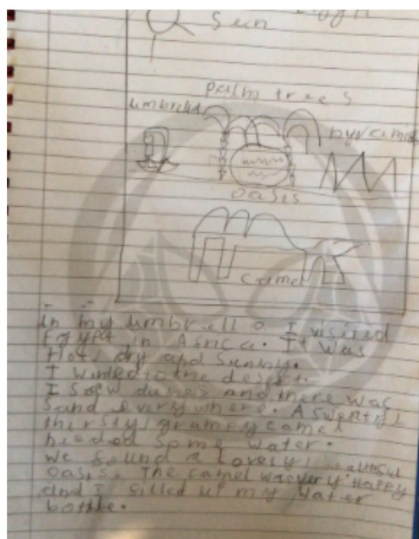 Sun
palm trees
umbrella
pyramid
oasis
camel
in my umbrella I visited
Egypt in Africa. It was
Hot, dry and sunny.
I to the desert.
I saw dunes and there was
sand everywhere. A sweaty,
thirsty, grumpy camel
needed some water.
We found a lovely, beautiful
oasis. The camel was very happy
and I filled up my water
bottle.